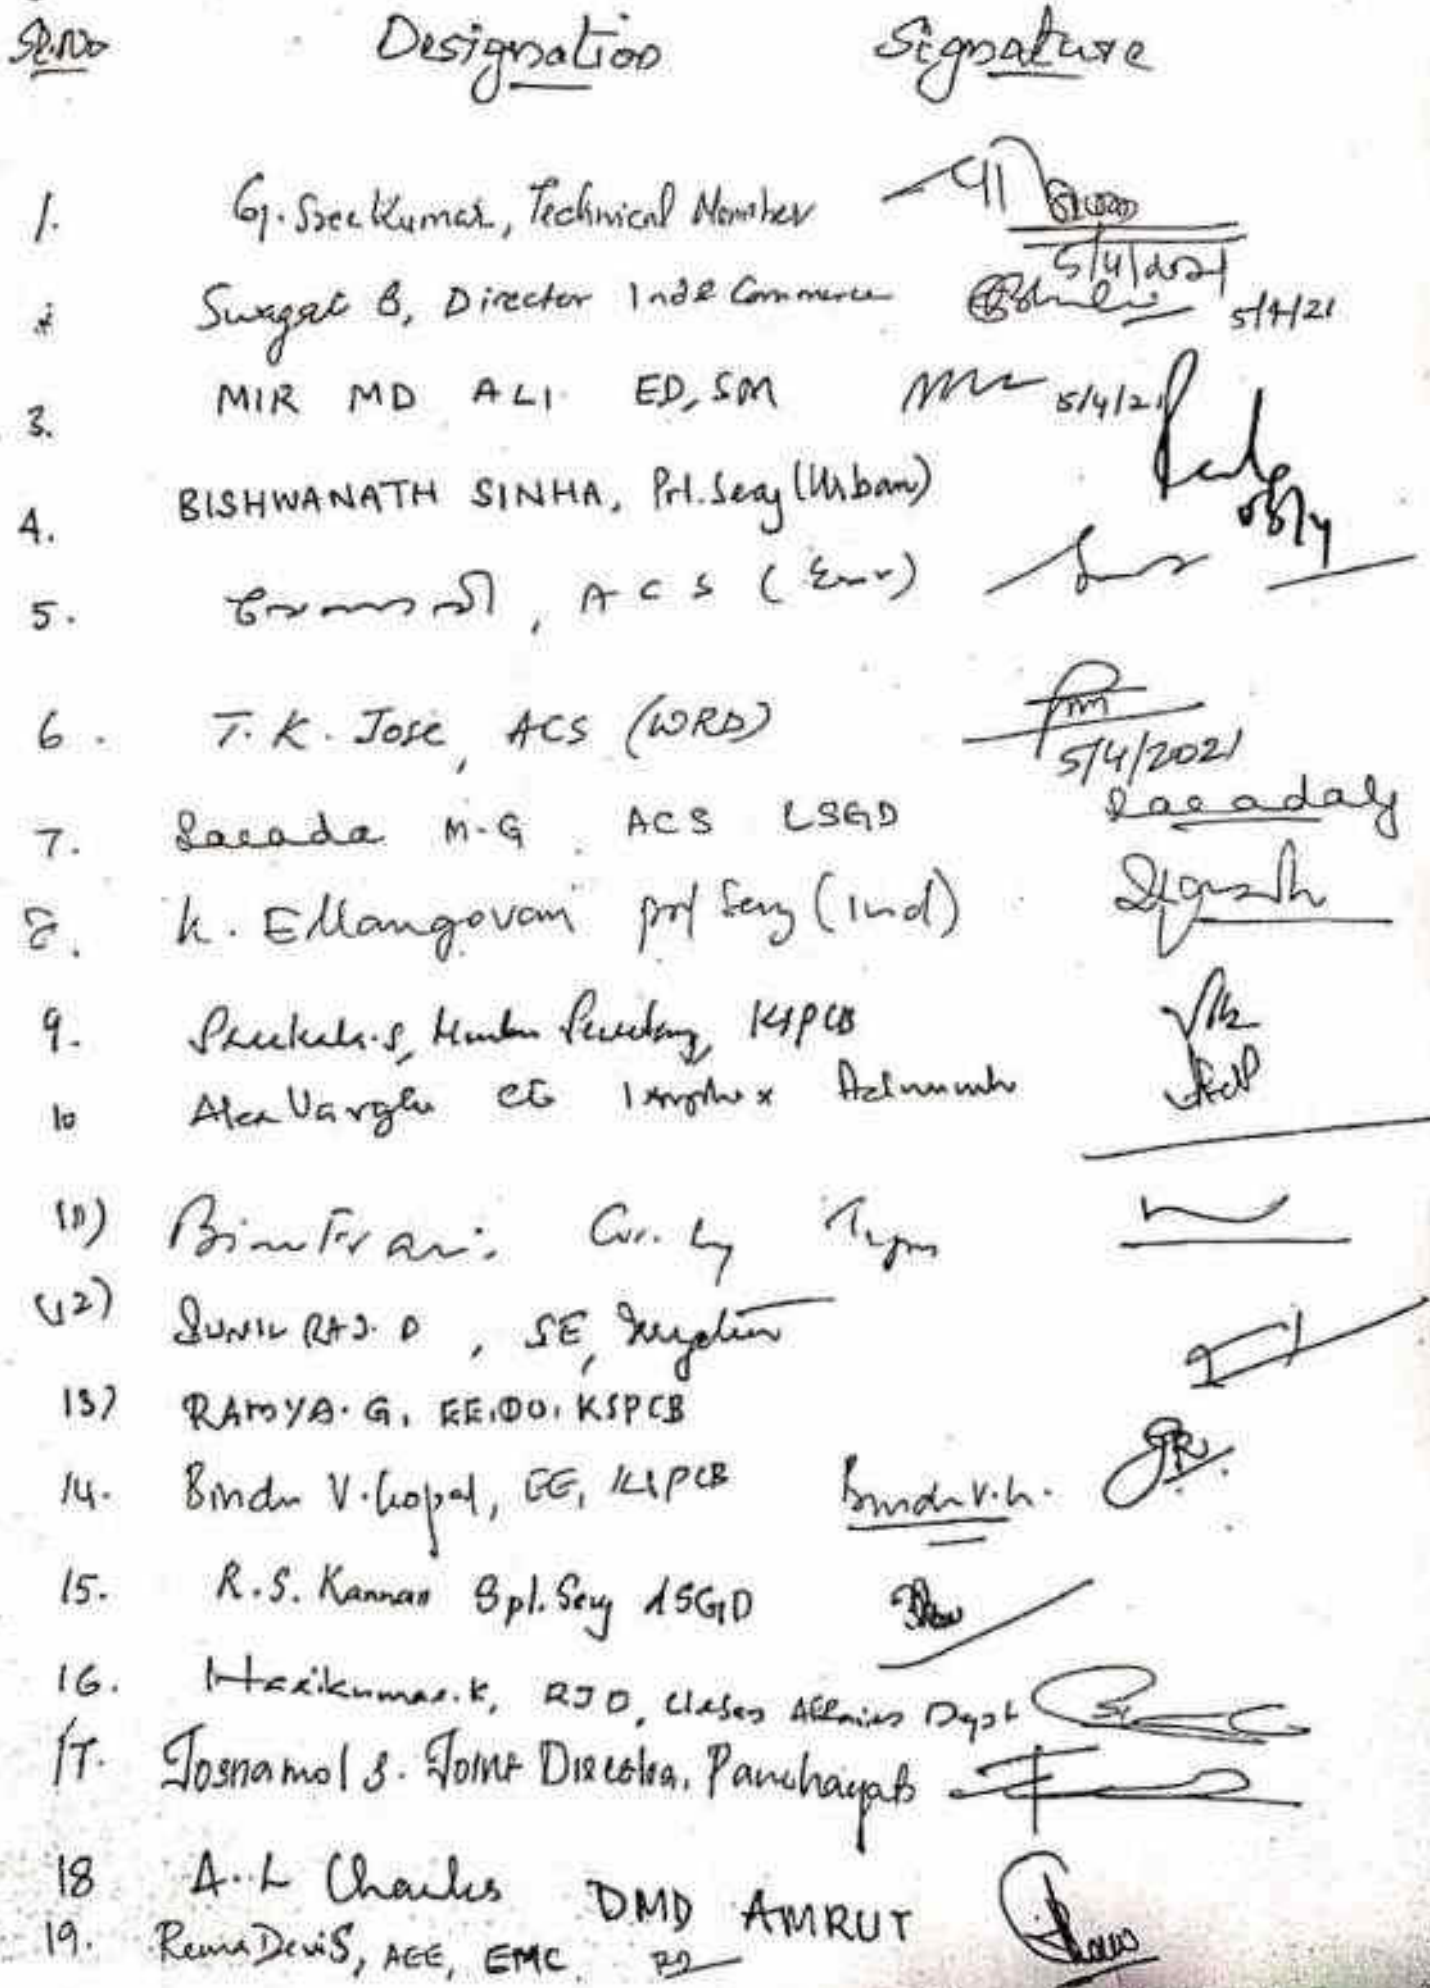 Sl.No Designation Signature
1. G. Sree Kumar, Technical Member 5/4/2021
Swagat B, Director Ind & Commerce 5/4/21
3. MIR MD ALI ED, SM 5/4/21
4. BISHWANATH SINHA, Prl. Secy (Urban) 05/4
5. , ACS (Env)
6. T. K. Jose, ACS (WRD) 5/4/2021
7. Sarada M.G. ACS LSGD
8. K. Ellangovan prl Secy (Ind)
9. Sreekala.S, Member Secretary, KSPCB
10 Alex Varghese CE Admin
11)
12) SUNIL RAJ. D, SE, Irrigation
13) RAMYA. G, EE, DO, KSPCB
14. Bindu V. Gopal, EE, KSPCB Bindu V.G.
15. R.S. Kannan Spl. Secy LSGD
16. Harikumar.K, RJD, Urban Affairs Dept
17. Josnamol S. Joint Director, Panchayats
18 A.L Charles DMD AMRUT
19. Rema Devi S, AEE, EMC